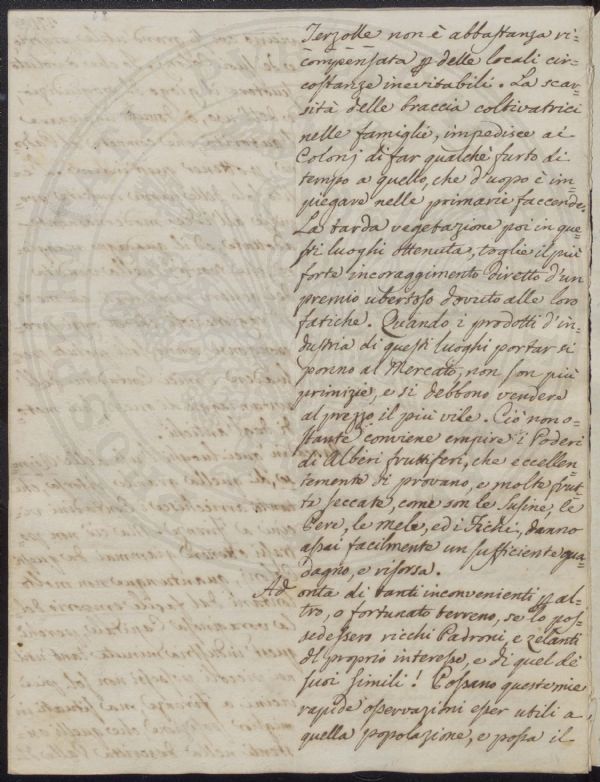 Terzolle non è abbastanza ri=
=compensata p delle locali cir=
costanze inevitabili. La scar=
sità delle braccia coltivatrici
nelle famiglie, impedisce ai
Colonj di far qualche furto di
tempo a quello, che d'uopo è im=
piegare nelle primarie faccende.
La tarda vegetazione poi in que=
sti luoghi ottenuta, toglie il più
forte incoraggimento diretto d'un
premio ubertoso dovuto alle loro
fatiche. Quando i prodotti d'in=
dustria di questi luoghi portar si
ponno al Mercato, non son più
primizie, e si debbono vendere
al prezzo il più vile. Ciò non o=
stante conviene empire i Poderi
di Alberi fruttiferi, che eccellen=
temente vi provano, e molte frut=
ta seccate, come son le Susine, le
Pere, le mele, ed i Fichi, danno
assai facilmente un sufficiente gua=
dagno, e risorsa.
Ad onta di tanti inconvenienti p al=
tro, o fortunato terreno, se lo pos=
sedessero ricchi Padroni, e zelanti
del proprio interesse, e di quel de'
suoi simili! Possano queste mie
rapide osservazioni esser utili a
quella popolazione, e possa il